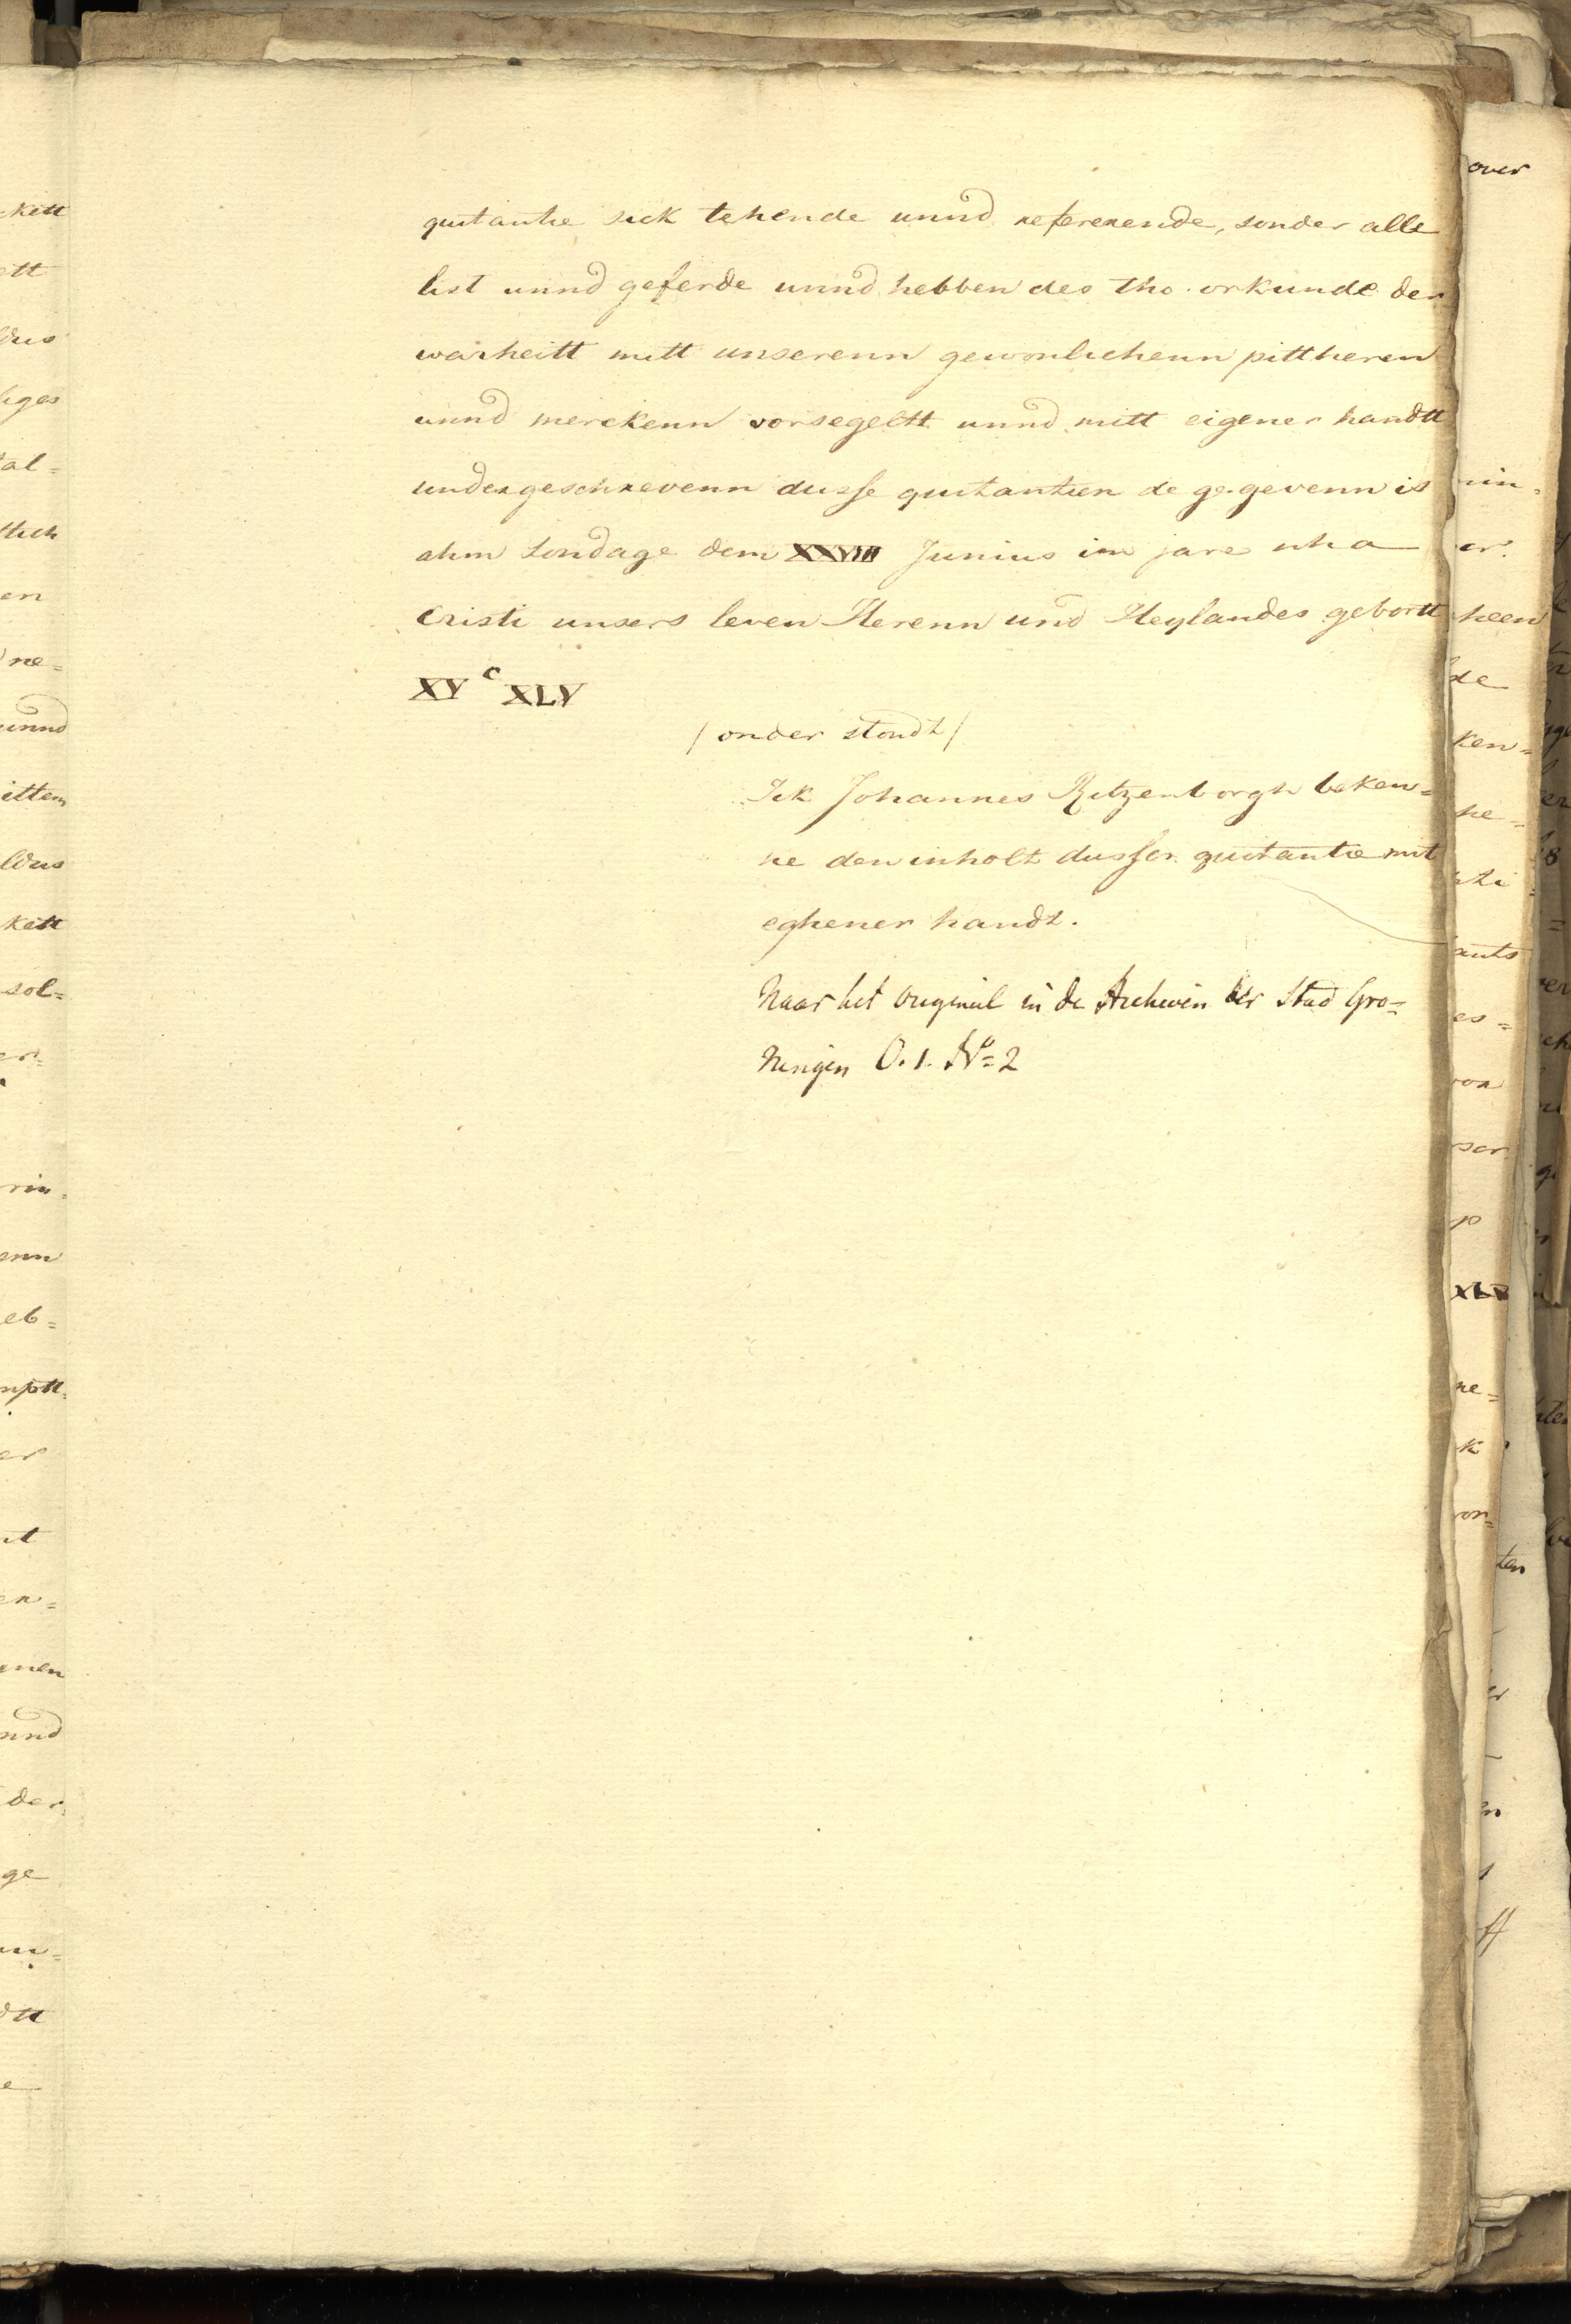 quitantie sick tehende unnd refererende, sonder alle
list unnd geferde unnd hebben des tho orkunde der
warheitt mitt unserenn gewonlichenn pittheren
unnd merckenn vorsegeltt unnd mitt eigener handtt
undergeschrevenn dusse quitantien de gegevenn is
ahm sondage dem XXVIII Junius im jare nha
Cristi unsers leven Herenn und Heylandes gebortt
XV c XLV
/ onder stondt /
Ick Johannes Ritzenborgh beken=
ne den inholt dusser quitantie mit
eghener handt.
Naar het origineel in de Archiven der Stad Gro=
ningen O. 1. No= 2